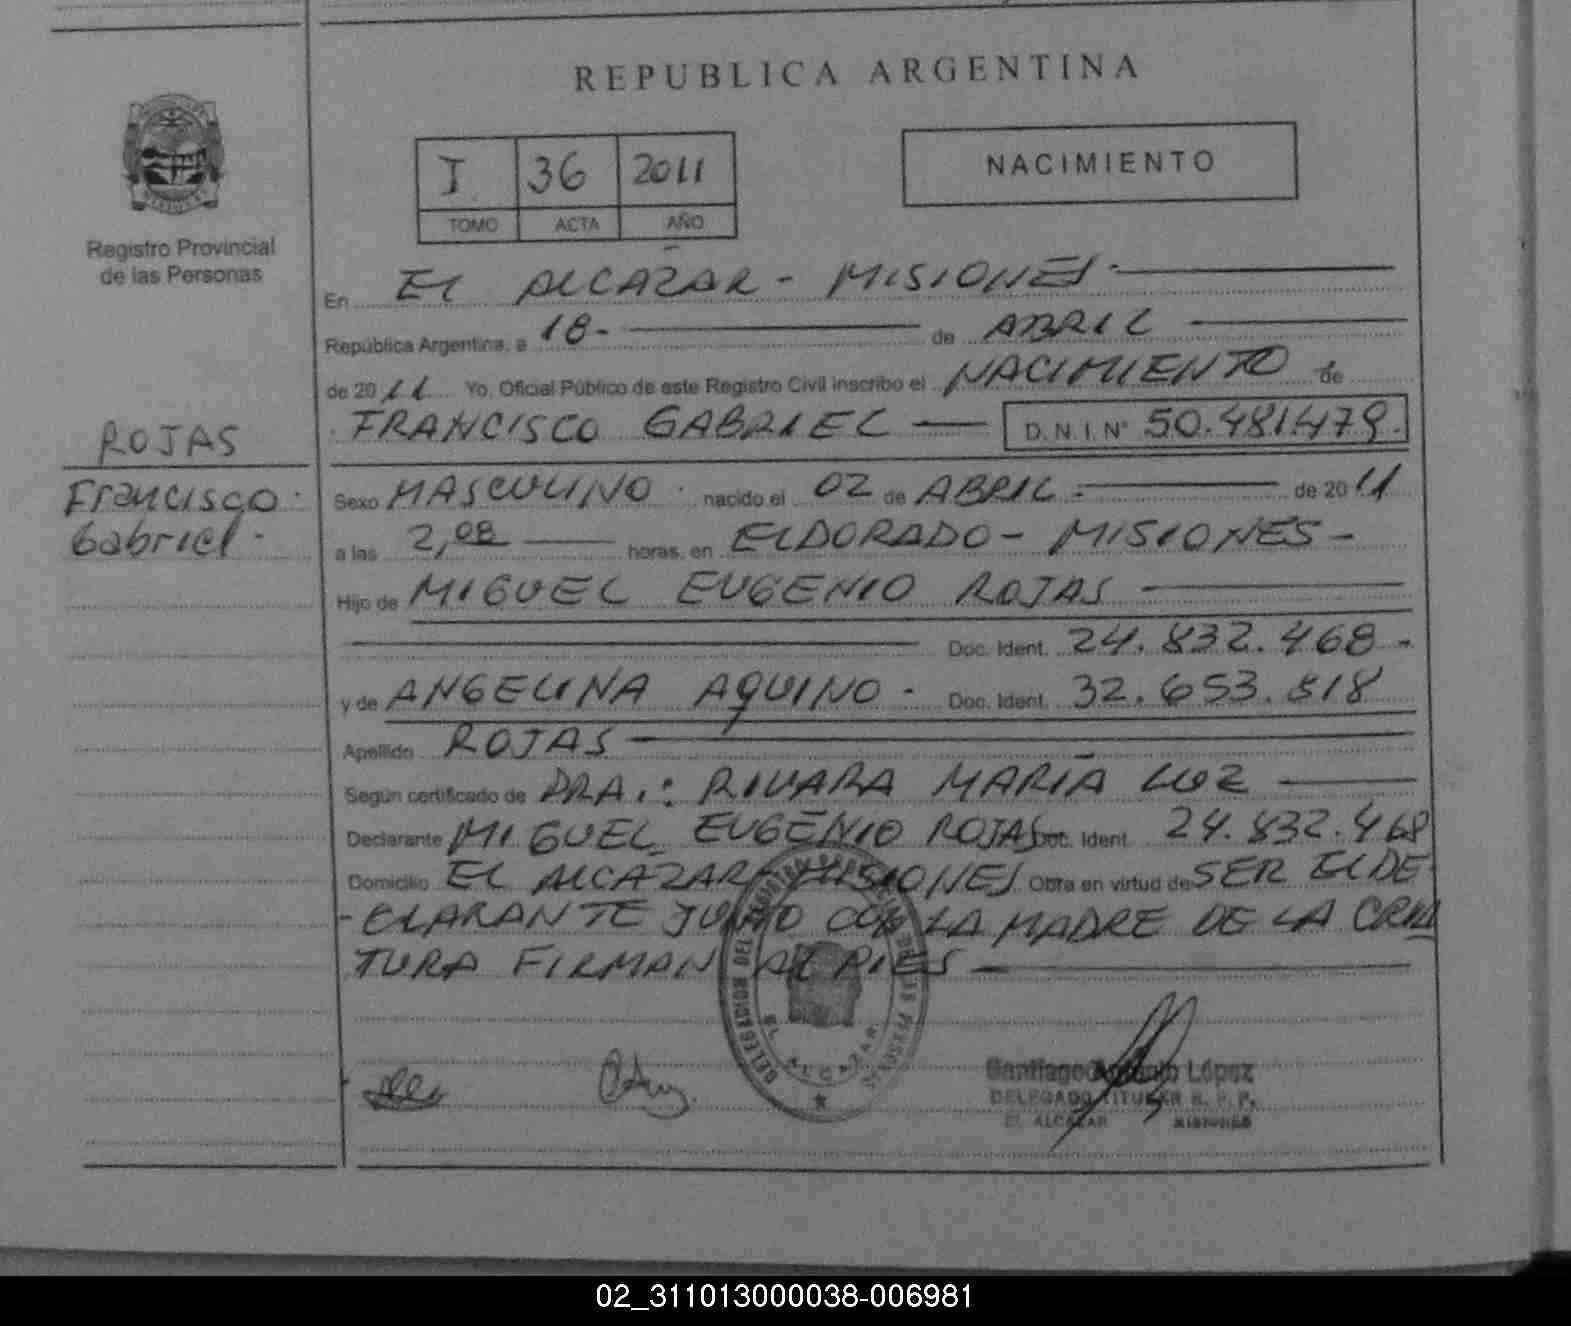 REPUBLICA ARGENTINA
I 36 2011
TOMO ACTA AÑO
NACIMIENTO
Registro Provincial
de las Personas
En EL ALCAZAR - MISIONES -
República Argentina, a 18- de ABRIL
de 2011 Yo, Oficial Público de este Registro Civil inscribo el NACIMIENTO de
FRANCISCO GABRIEL D.N.I.Nº 50.481.479.
ROJAS
Francisco
Gabriel.
Sexo MASCULINO. nacido el 02 de ABRIL. de 2011
a las 2,08 horas, en ELDORADO - MISIONES -
Hijo de MIGUEL EUGENIO ROJAS
Doc. Ident. 24.832.468-
y de ANGELINA AQUINO. Doc. Ident. 32.653.818
Apellido ROJAS
Según certificado de DRA.: RIVARA MARÍA LUZ
Declarante MIGUEL EUGENIO ROJAS Doc. Ident. 24.832.468
Domicilio EL ALCAZAR MISIONES Obra en virtud de SER EL DE-
-CLARANTE JUNTO CON LA MADRE DE LA CRIA
TURA FIRMAN AL PIES
DELEGACION DEL REGISTRO PROVINCIAL DE LAS PERSONAS
EL ALCAZAR
Santiago Antonio López
DELEGADO TITULAR R. P. P.
EL ALCAZAR MISIONES
02_311013000038-006981